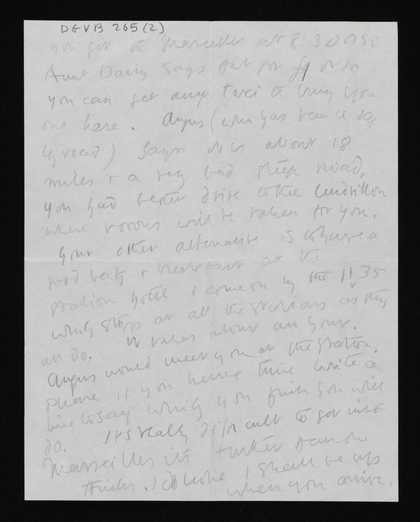 DGVB 265(2)
you get to Marseilles at 8.30
Aunt Daisy says that for £1 or so
you can get any taxi to bring you
out here. Angus (who has been
) says it is about 18
miles + a very bad steep road,
you had better drive to the
where rooms will be taken for you.
Your other alternative is to have a
bath + breakfast at the
station hotel + come on by the 11.35
which stops at all the stations as they
all do. It takes about an hour.
Angus would meet you at the station.
Please if you have time write a
line to say which you think you will
do. It's really difficult to get into
Marseilles
I shall be up
when you arrive.